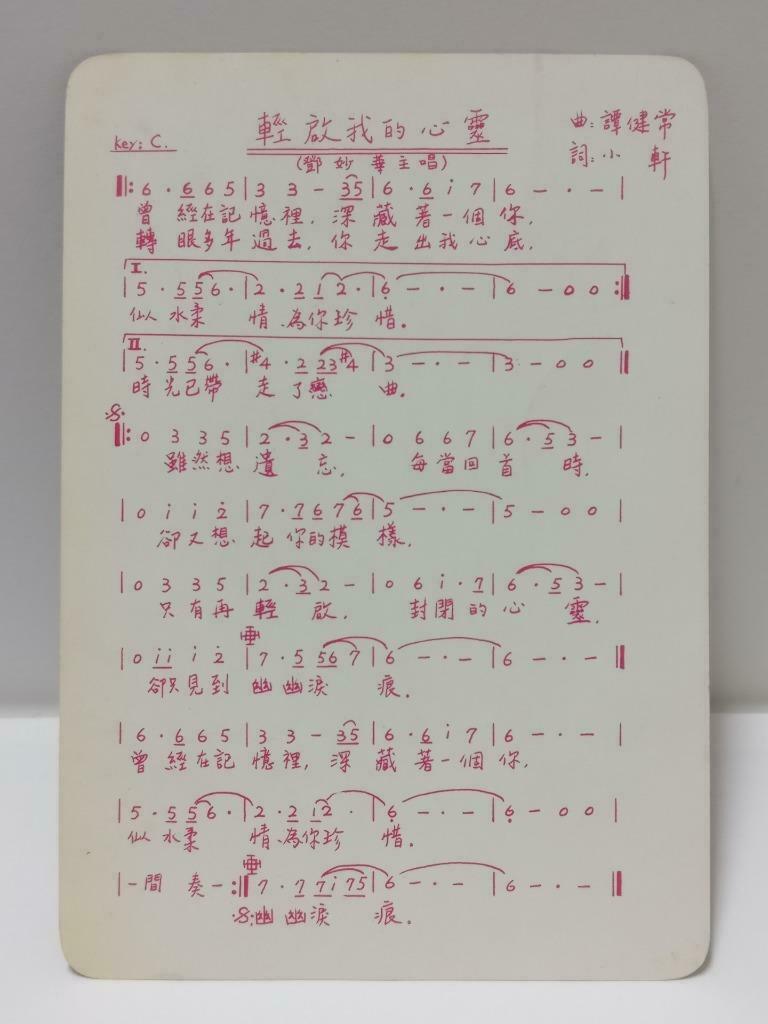 輕啟我的心靈
曲:譚健常
key: C.
(鄧妙華主唱)
詞:小軒
‖: 6 · 6 6 5 | 3 3 – 3 5 | 6 · 6 i 7 | 6 – · – |
曾經在記憶裡,深藏著一個你,
轉眼多年過去,你走出我心底.
I.
| 5 · 5 5 6 · | 2 · 2 1 2 · | 6 – · – | 6 – 0 0 :‖
似水柔情、為你珍惜.
II.
| 5 · 5 5 6 · | #4 · 2 2 3 #4 | 3 – · – | 3 – 0 0 ‖
時光已帶走了戀曲.
‖: 0 3 3 5 | 2 · 3 2 – | 0 6 6 7 | 6 · 5 3 – |
雖然想遺忘, 每當回首時,
| 0 i i 2 | 7 · 7 6 7 6 | 5 – · – | 5 – 0 0 |
卻又想起你的模樣.
| 0 3 3 5 | 2 · 3 2 – | 0 6 i · 7 | 6 · 5 3 – |
只有再輕啟, 封閉的心靈,
| 0 i i i 2 | 7 · 5 5 6 7 | 6 – · – | 6 – · – ‖
卻只見到幽幽淚痕.
| 6 · 6 6 5 | 3 3 – 3 5 | 6 · 6 i 7 | 6 – · – |
曾經在記憶裡,深藏著一個你,
| 5 · 5 5 6 · | 2 · 2 1 2 · | 6 – · – | 6 – 0 0 |
似水柔情、為你珍惜.
| – 間奏 – :‖ 7 · 7 7 i 7 5 | 6 – · – | 6 – · – ‖
·S·幽幽淚痕.